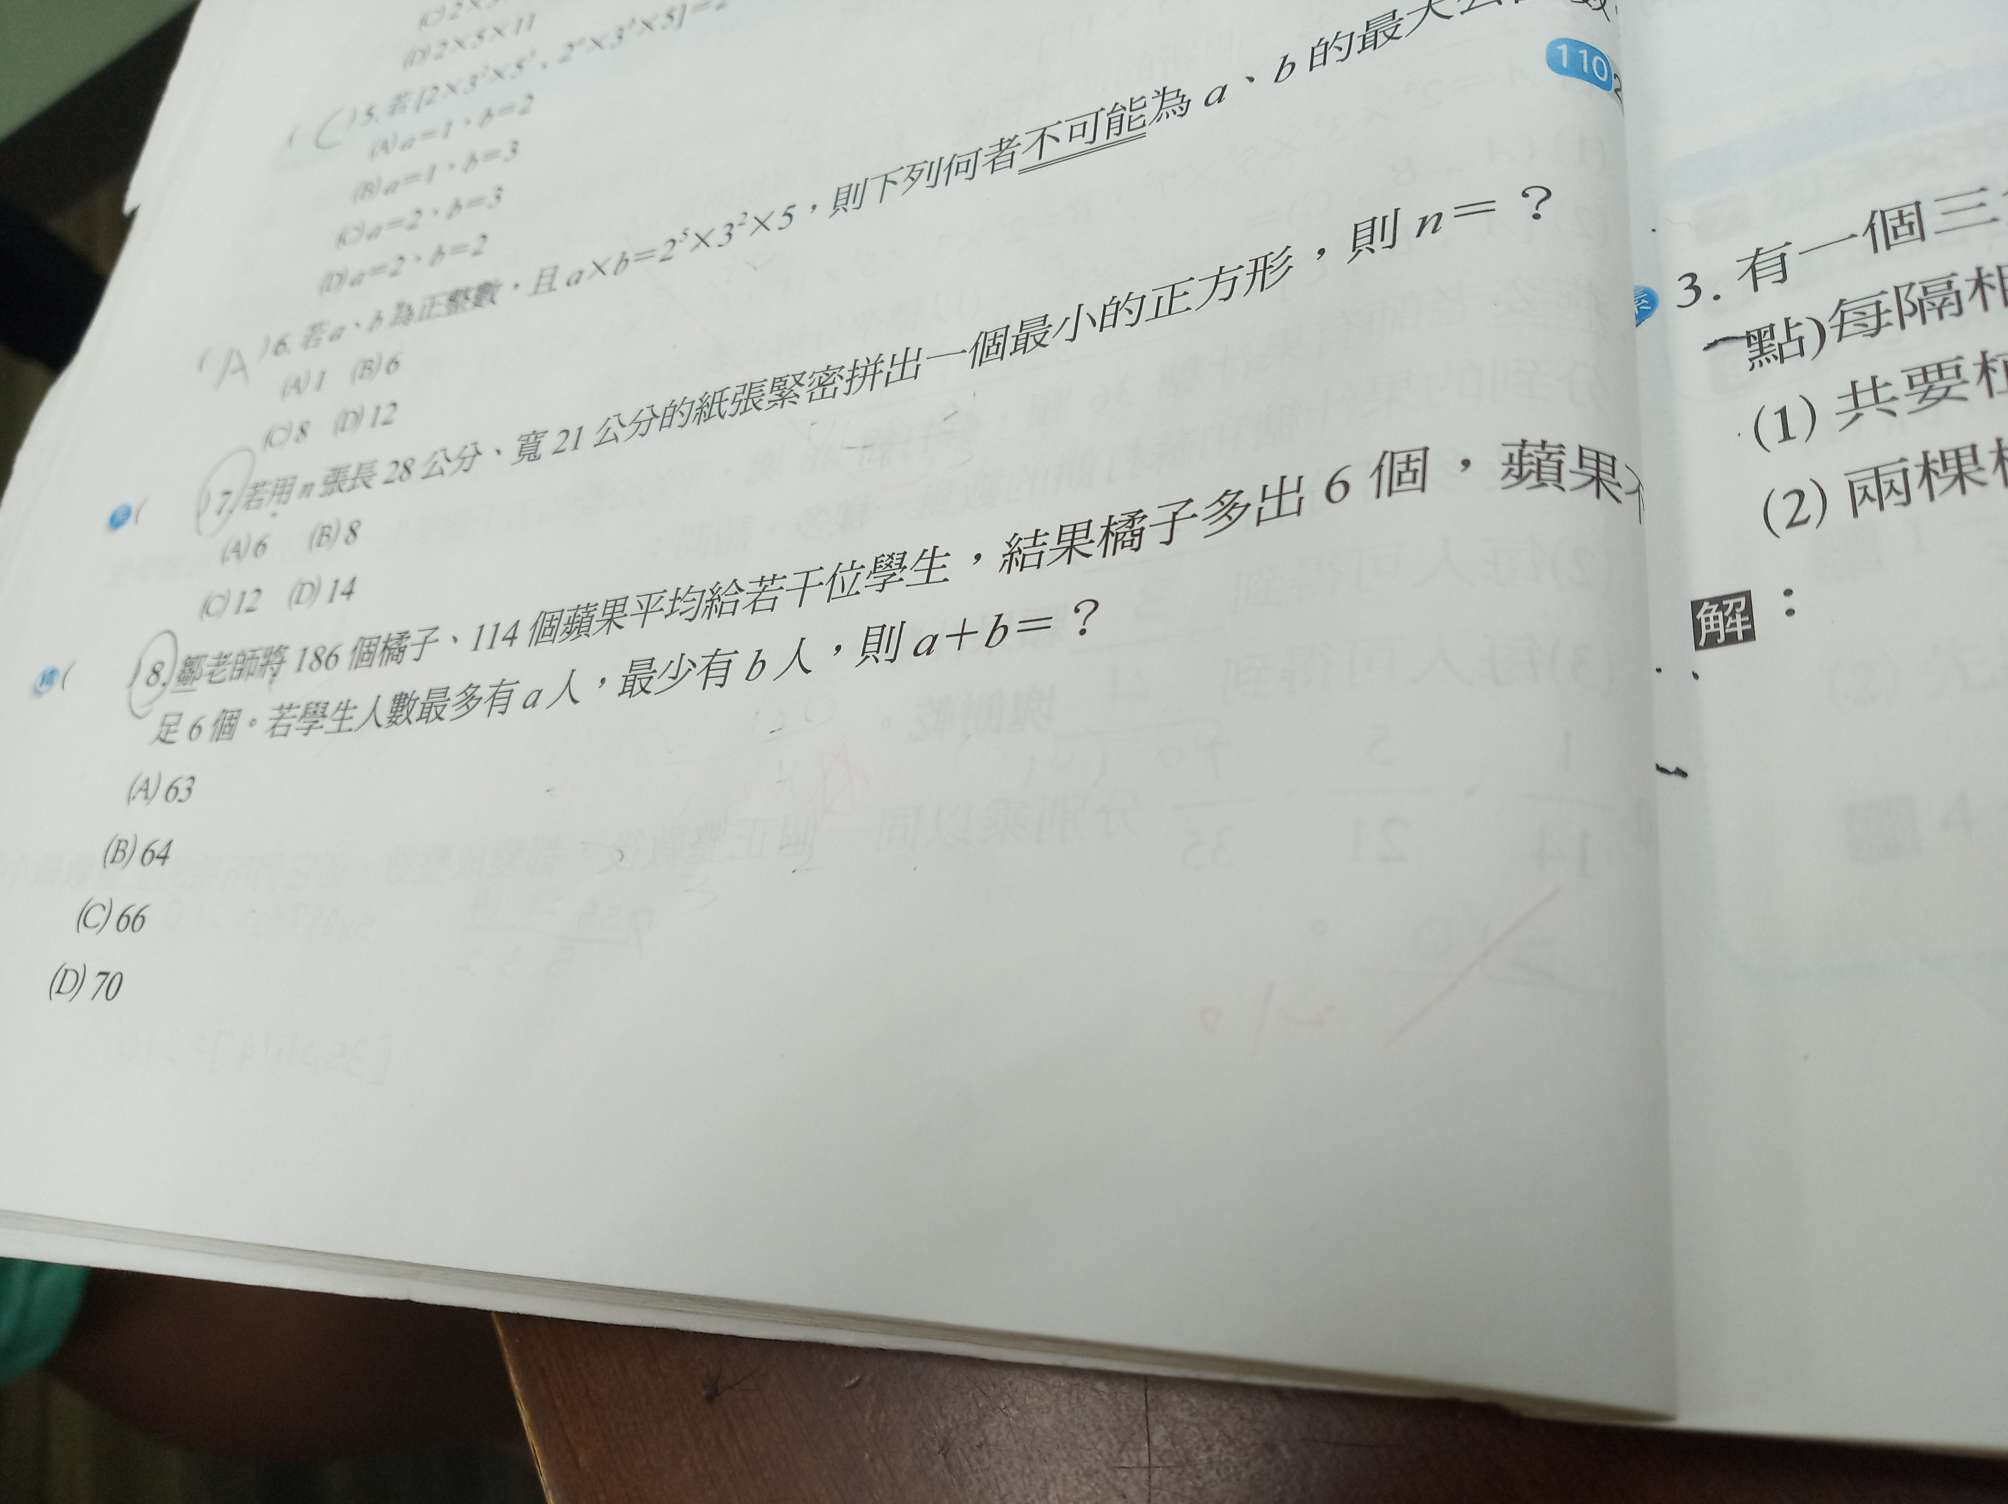 (D) 2×5×11
( C ) 5. 若 [2×3²×5³、2ᵃ×3ᵇ×5]=2
(A) a=1、b=2
(B) a=1、b=3
(C) a=2、b=3
(D) a=2、b=2
( A ) 6. 若 a、b 為正整數，且 a×b=2⁵×3²×5，則下列何者不可能為 a、b 的最大公
(A) 1 (B) 6
(C) 8 (D) 12
( ) 7. 若用 n 張長 28 公分、寬 21 公分的紙張緊密拼出一個最小的正方形，則 n=？
(A) 6 (B) 8
(C) 12 (D) 14
( ) 8. 鄒老師將 186 個橘子、114 個蘋果平均給若干位學生，結果橘子多出 6 個，蘋果不
足 6 個。若學生人數最多有 a 人，最少有 b 人，則 a+b=？
(A) 63
(B) 64
(C) 66
(D) 70
110
3. 有一個三
點)每隔相
(1) 共要植
(2) 兩棵
解：